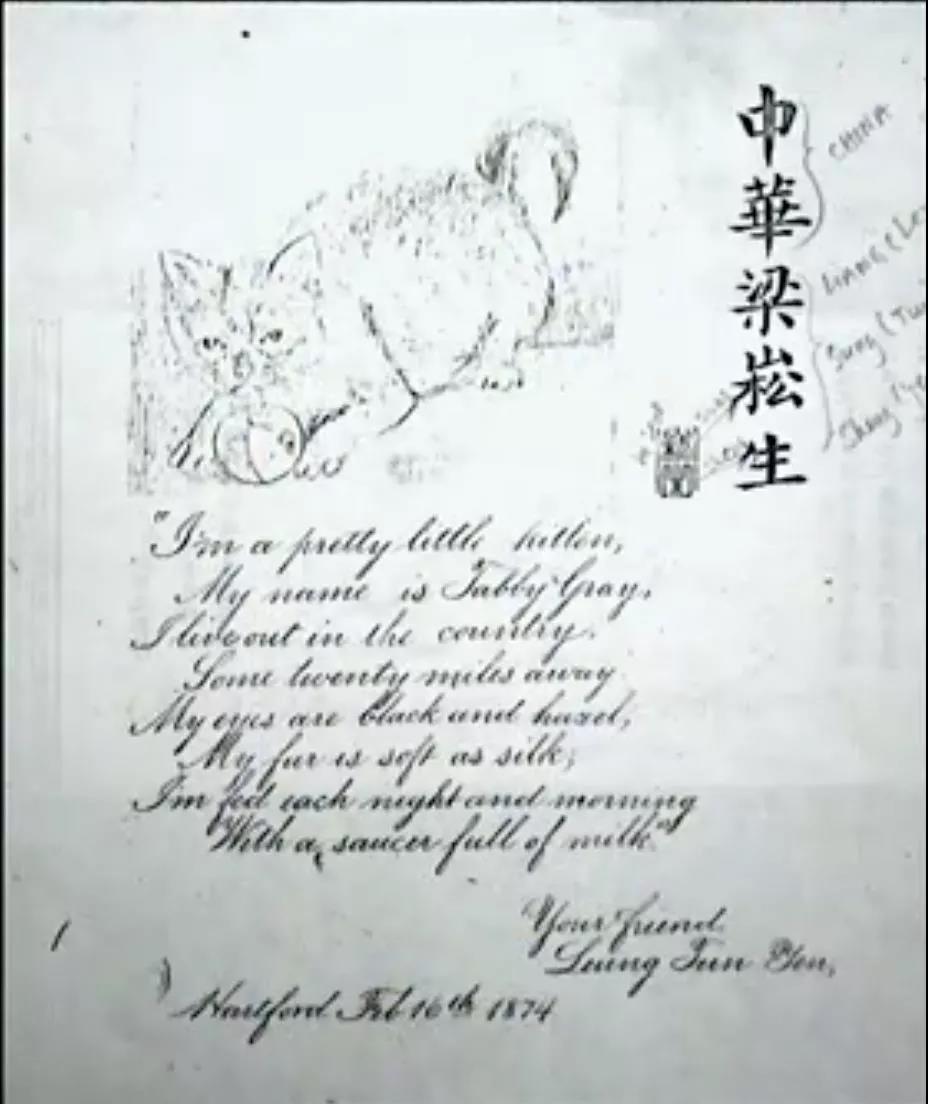 中華梁崧生
CHINA
"I'm a pretty little kitten,
My name is Tabby Gray,
I live out in the country,
Some twenty miles away.
My eyes are black and hazel;
My fur is soft as silk;
I'm fed each night and morning
With a saucer full of milk"
Your friend
Leung Tun Yen,
Hartford Feb 16th 1874